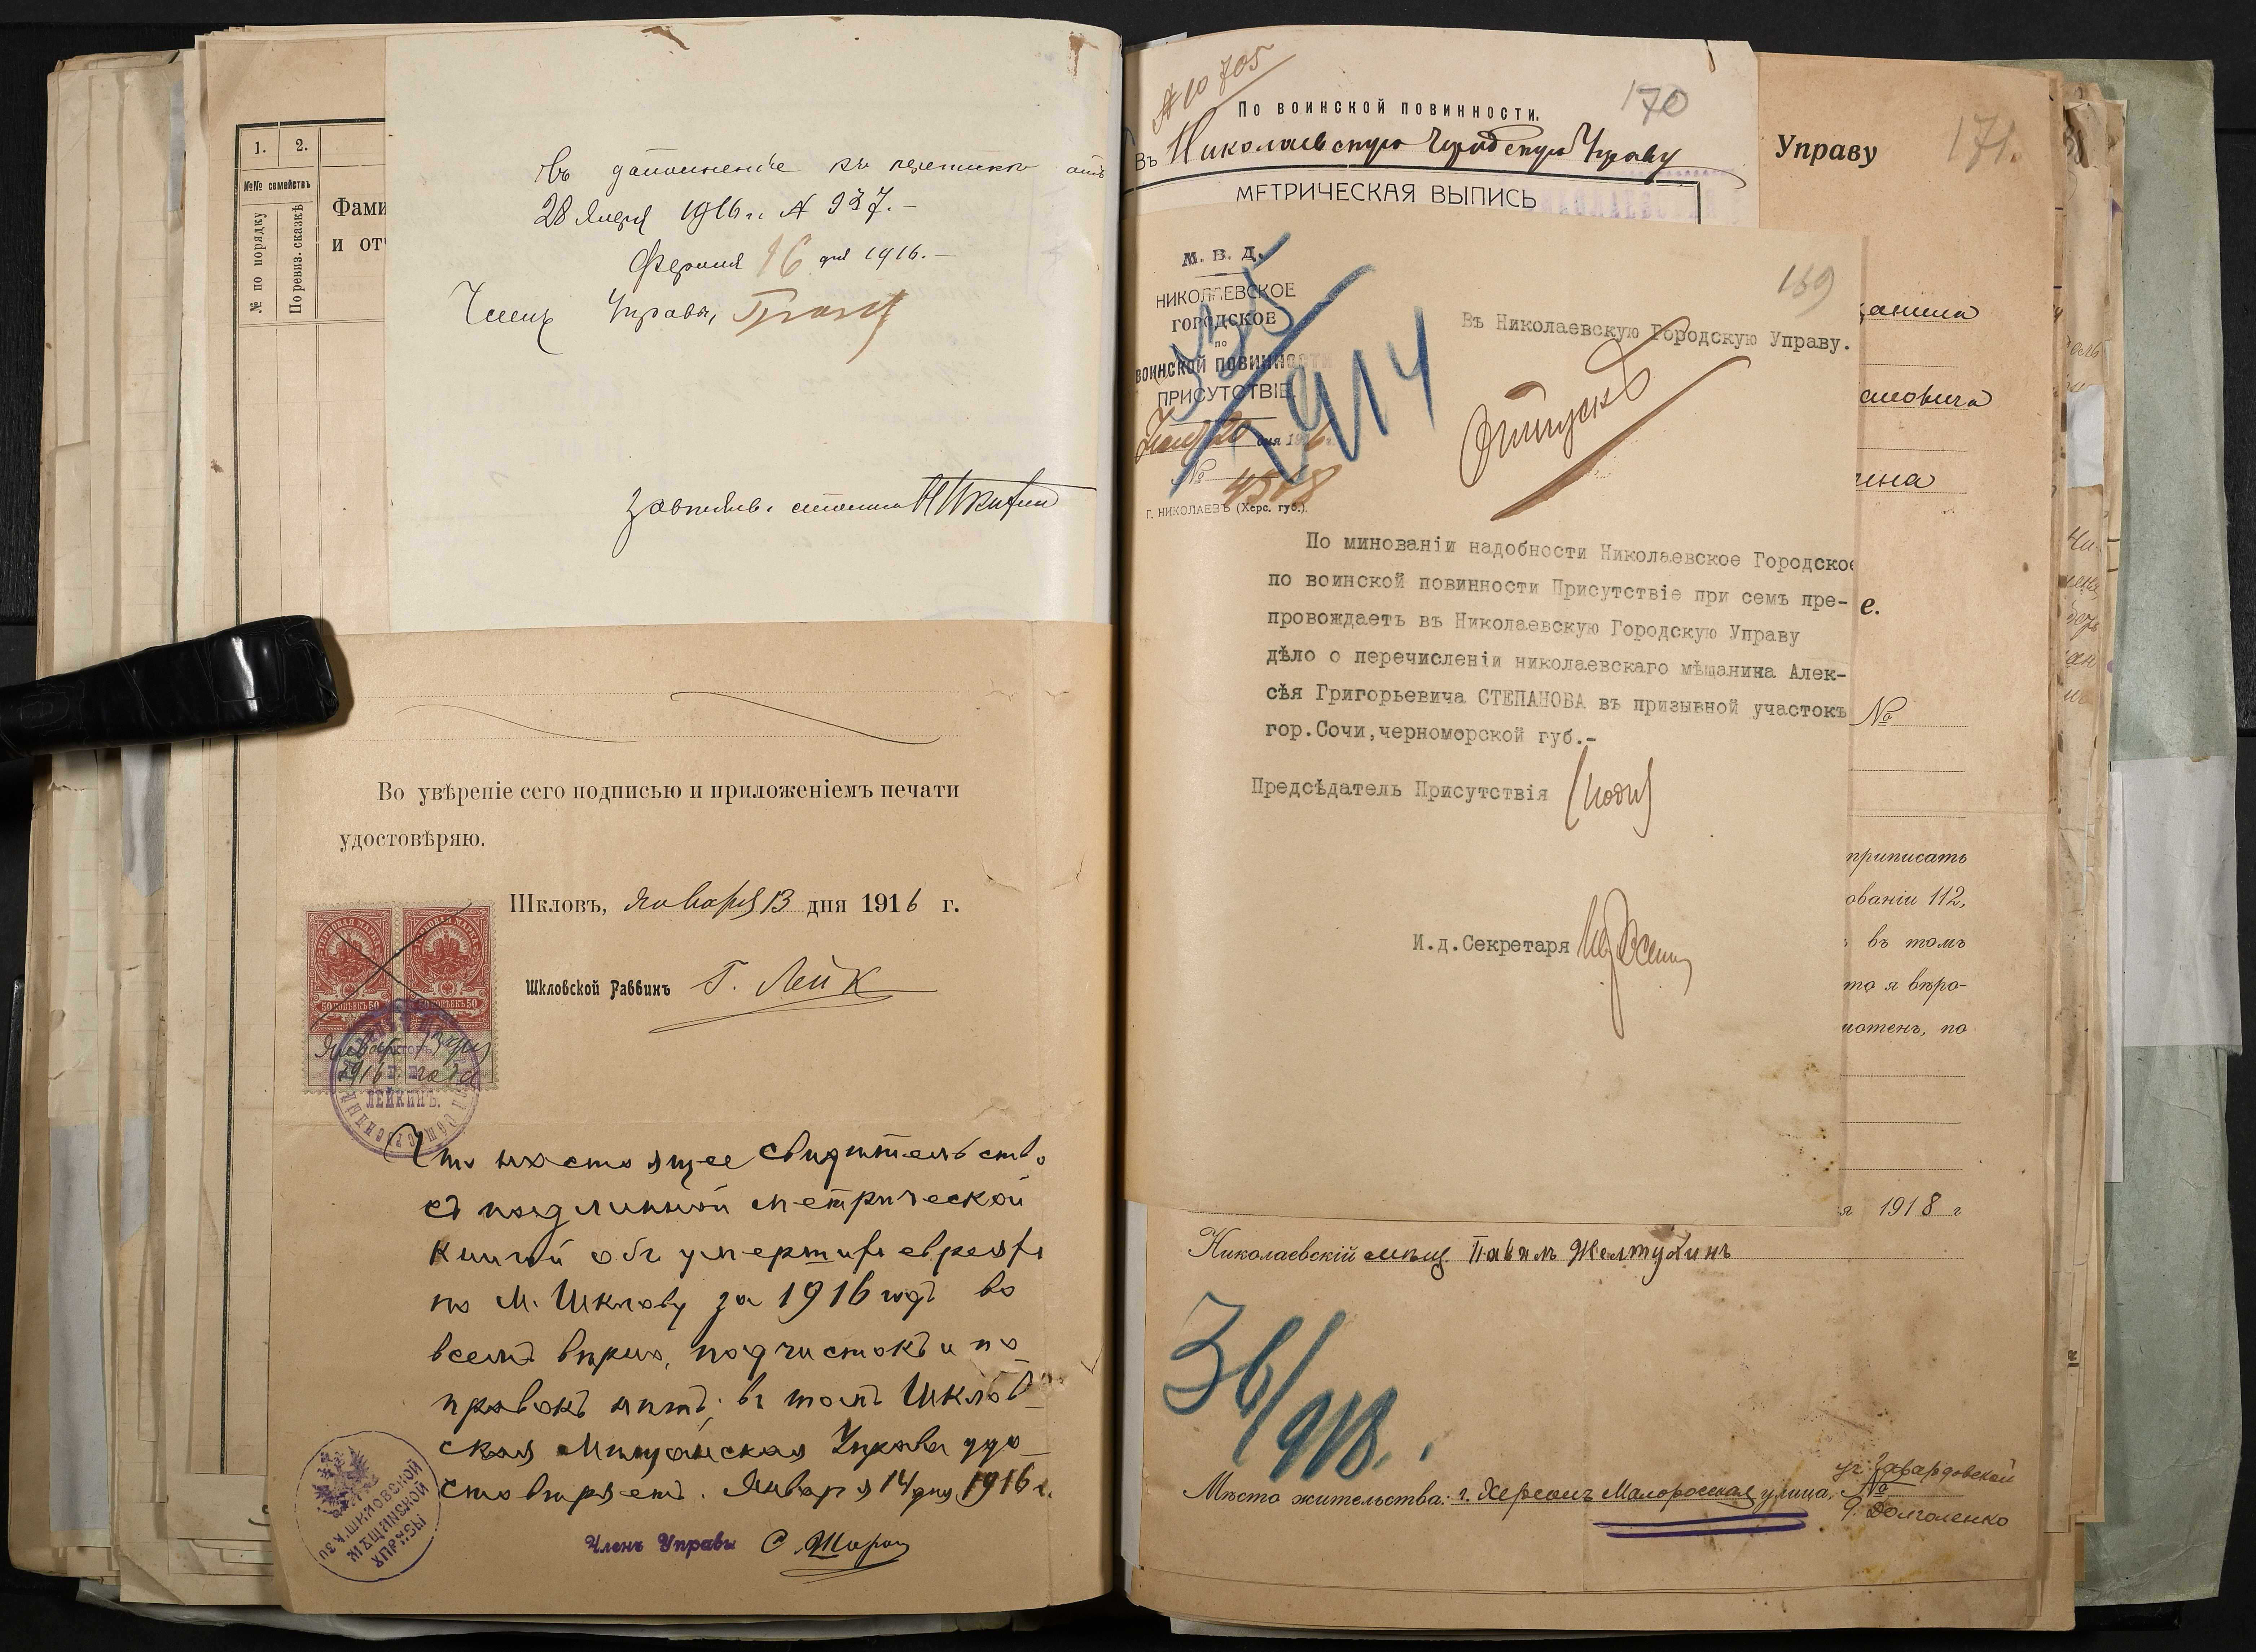 1. 2.
№№ семействъ
№ по порядку
По ревиз. сказкѣ
Фами
и от
Въ дополненіе къ
28 Янвр 1916 г. № 937.-
Февраля 16 дня 1916.-
Членъ Управы,
Во увѣреніе сего подписью и приложеніемъ печати
удостовѣряю.
Шкловъ, Января 13 дня 1916 г.
Шкловской Раввинъ Г. Лейк
ГЕРБОВАЯ МАРКА
ГЕРБОВАЯ МАРКА
50 КОПѢЕКЪ 50
50 КОПѢЕКЪ 50
Января 13 дня
1916 года
ЛЕЙКИНЪ.
Что настоящее свидѣтельство
съ подлинной метрической
книгой объ умершихъ евреяхъ
по м. Шклову за 1916 годъ во
всемъ вѣрно, подчистокъ и по
правокъ нѣтъ, въ томъ Шклов-
ская Мѣщанская Управа удо-
стовѣряетъ. Января 14 дня 1916 г.
Членъ Управы
ШКЛОВСКОЙ
МѢЩАНСКОЙ
УПРАВЫ
№ 10705
По воинской повинности.
170
Въ Николаевскую Городскую Управу
МЕТРИЧЕСКАЯ ВЫПИСЬ
Управу
171.
М. В. Д.
НИКОЛАЕВСКОЕ
ГОРОДСКОЕ
по
ВОИНСКОЙ ПОВИННОСТИ
ПРИСУТСТВІЕ.
20 дня 1916 г.
№ 4518
Г. НИКОЛАЕВЪ (Херс. губ.).
1914
169
Въ Николаевскую Городскую Управу.
Отпускъ
По минованіи надобности Николаевское Городское
по воинской повинности Присутствіе при семъ пре-
провождаетъ въ Николаевскую Городскую Управу
дѣло о перечисленіи николаевскаго мѣщанина Алек-
сѣя Григорьевича СТЕПАНОВА въ призывной участокъ
гор.Сочи,черноморской губ.-
Предсѣдатель Присутствія (подп)
И.д.Секретаря
е.
№
приписать
ованіи 112,
въ томъ
то я вѣро-
мотенъ, по
я 1918 г
Николаевскій мѣщ. Павелъ Желтухинъ
36/918.
Мѣсто жительства: г. Херсонъ Малоросская улица, №
уг. Говардовской
д. Долголенко